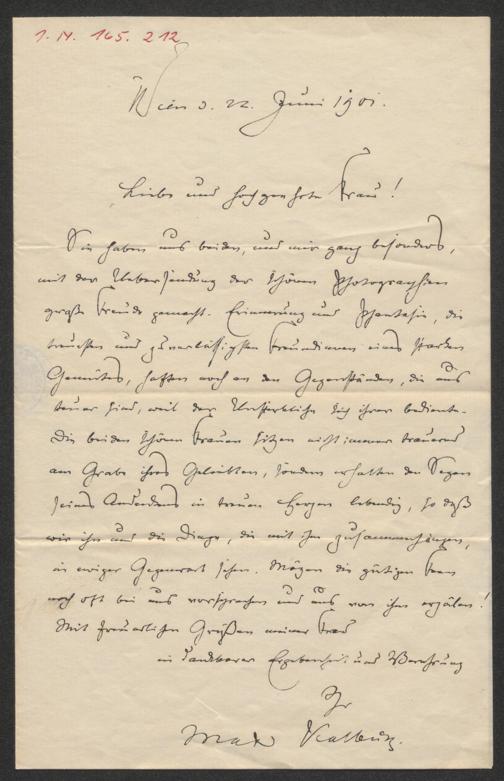 I. N. 165.212
Wien d. 22. Juni 1901.
Liebe und hochgeehrte Frau!
Sie haben uns beiden, und mir ganz besonders,
mit der Uebersendung der schönen Photographien
große Freude gemacht. Erinnerung und Phantasie, die
treuesten und zuverlässigsten Freundinnen eines starken
Gemütes, haften noch an den Gegenständen, die uns
teuer sind, weil der Unsterbliche sich ihrer bediente.
Die beiden schönen Frauen sitzen nicht immer trauernd
am Grabe ihres Geliebten, sondern erhalten den Segen
seines Andenkens in treuen Herzen lebendig, so daß
wir ihn und die Dinge, die mit ihm zusammenhängen,
in ewiger Gegenwart sehen. Mögen die gütigen Feen
noch oft bei uns vorsprechen und uns von ihm erzälen!
Mit freundlichen Grüßen meiner Frau
in dankbarer Ergebenheit und Verehrung
Ihr
Max Kalbeck.